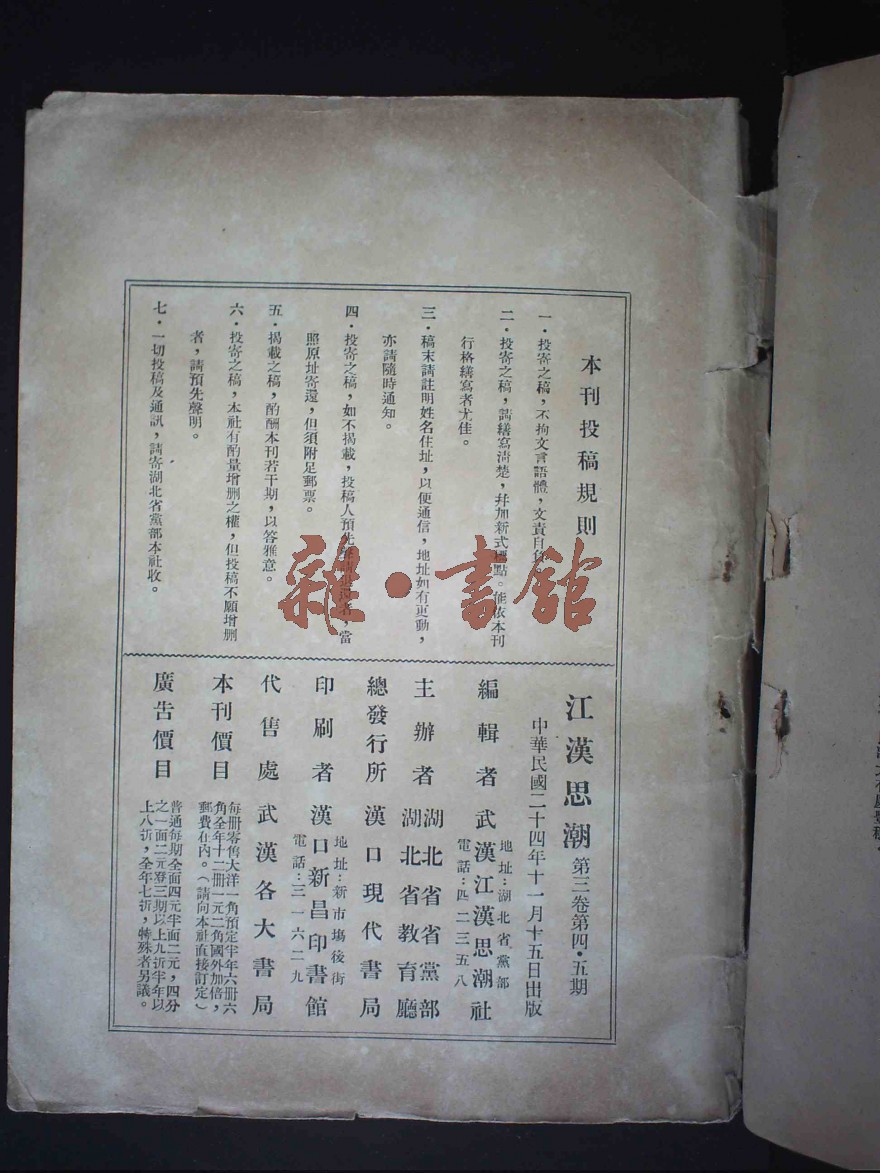 本刊投稿規則
一・投寄之稿，不拘文言語體，文責自負
二・投寄之稿，請繕寫清楚，幷加新式標點。能依本刊
行格繕寫者尤佳。
三・稿末請註明姓名住址，以便通信，地址如有更動，
亦請隨時通知。
四・投寄之稿，如不揭載，投稿人預先 者，當
照原址寄還，但須附足郵票。
五・揭載之稿，酌酬本刊若干期，以答雅意。
六・投寄之稿，本社有酌量增删之權，但投稿不願增删
者，請預先聲明。
七・一切投稿及通訊，請寄湖北省黨部本社收。
江漢思潮 第三卷第四・五期
中華民國二十四年十一月十五日出版
編輯者 武漢江漢思潮社
地址：湖北省黨部
電話：四二三五八
主辦者 湖北省省黨部
湖北省教育廳
總發行所 漢口現代書局
印刷者 漢口新昌印書館
地址：新市場後街
電話：三一六二九
代售處 武漢各大書局
本刊價目
每冊零售大洋一角預定半年六冊六
角全年十二冊一元二角國外加倍，
郵費在內。（請向本社直接訂定）
廣告價目
普通每期全面四元半面二元，四分
之一面二元登三期以上九折半年以
上八折，全年七折，特殊者另議。
雜・書館